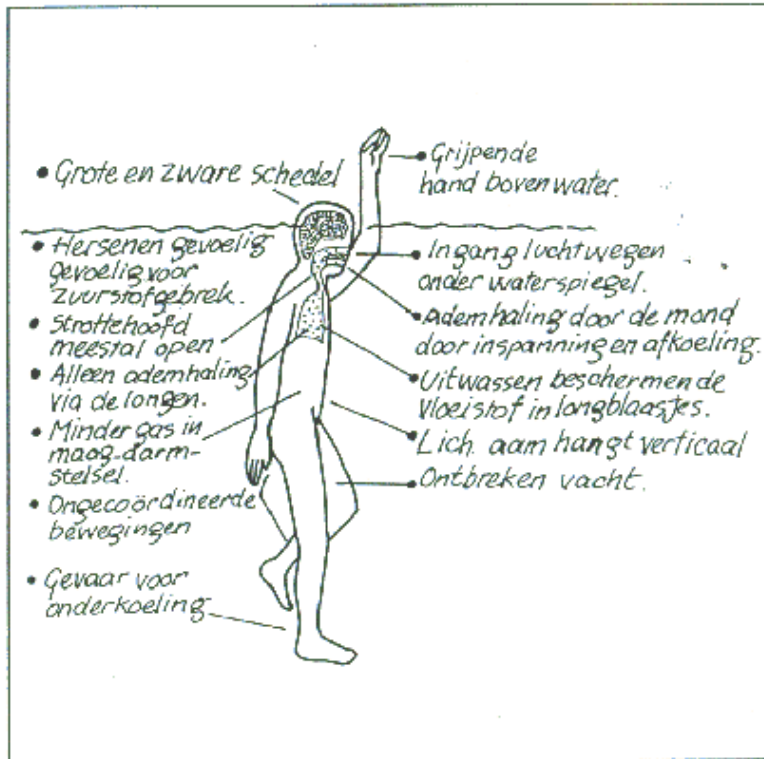 • Grote en zware schedel
• Hersenen gevoelig
gevoelig voor
zuurstofgebrek.
• Strottehoofd
meestal open
• Alleen ademhaling
via de longen.
• Minder gas in
maag-darm-
stelsel.
• Ongecoördineerde
bewegingen
• Gevaar voor
onderkoeling
• Grijpende
hand boven water.
• Ingang luchtwegen
onder waterspiegel.
• Ademhaling door de mond
door inspanning en afkoeling.
• Uitwassen beschermende
vloeistof in longblaasjes.
• Lich aam hangt verticaal
• Ontbreken vacht.